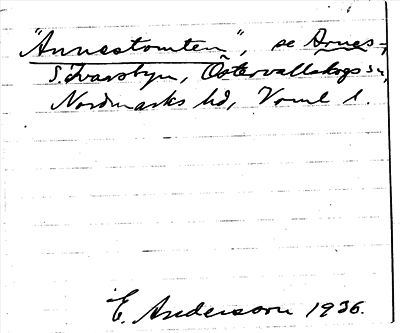 "Annestomten", se Arnes-,
S. Ivarsbyn, Östervallskogs sn,
Nordmarks hd, Vrml l.
E. Anderson 1936.